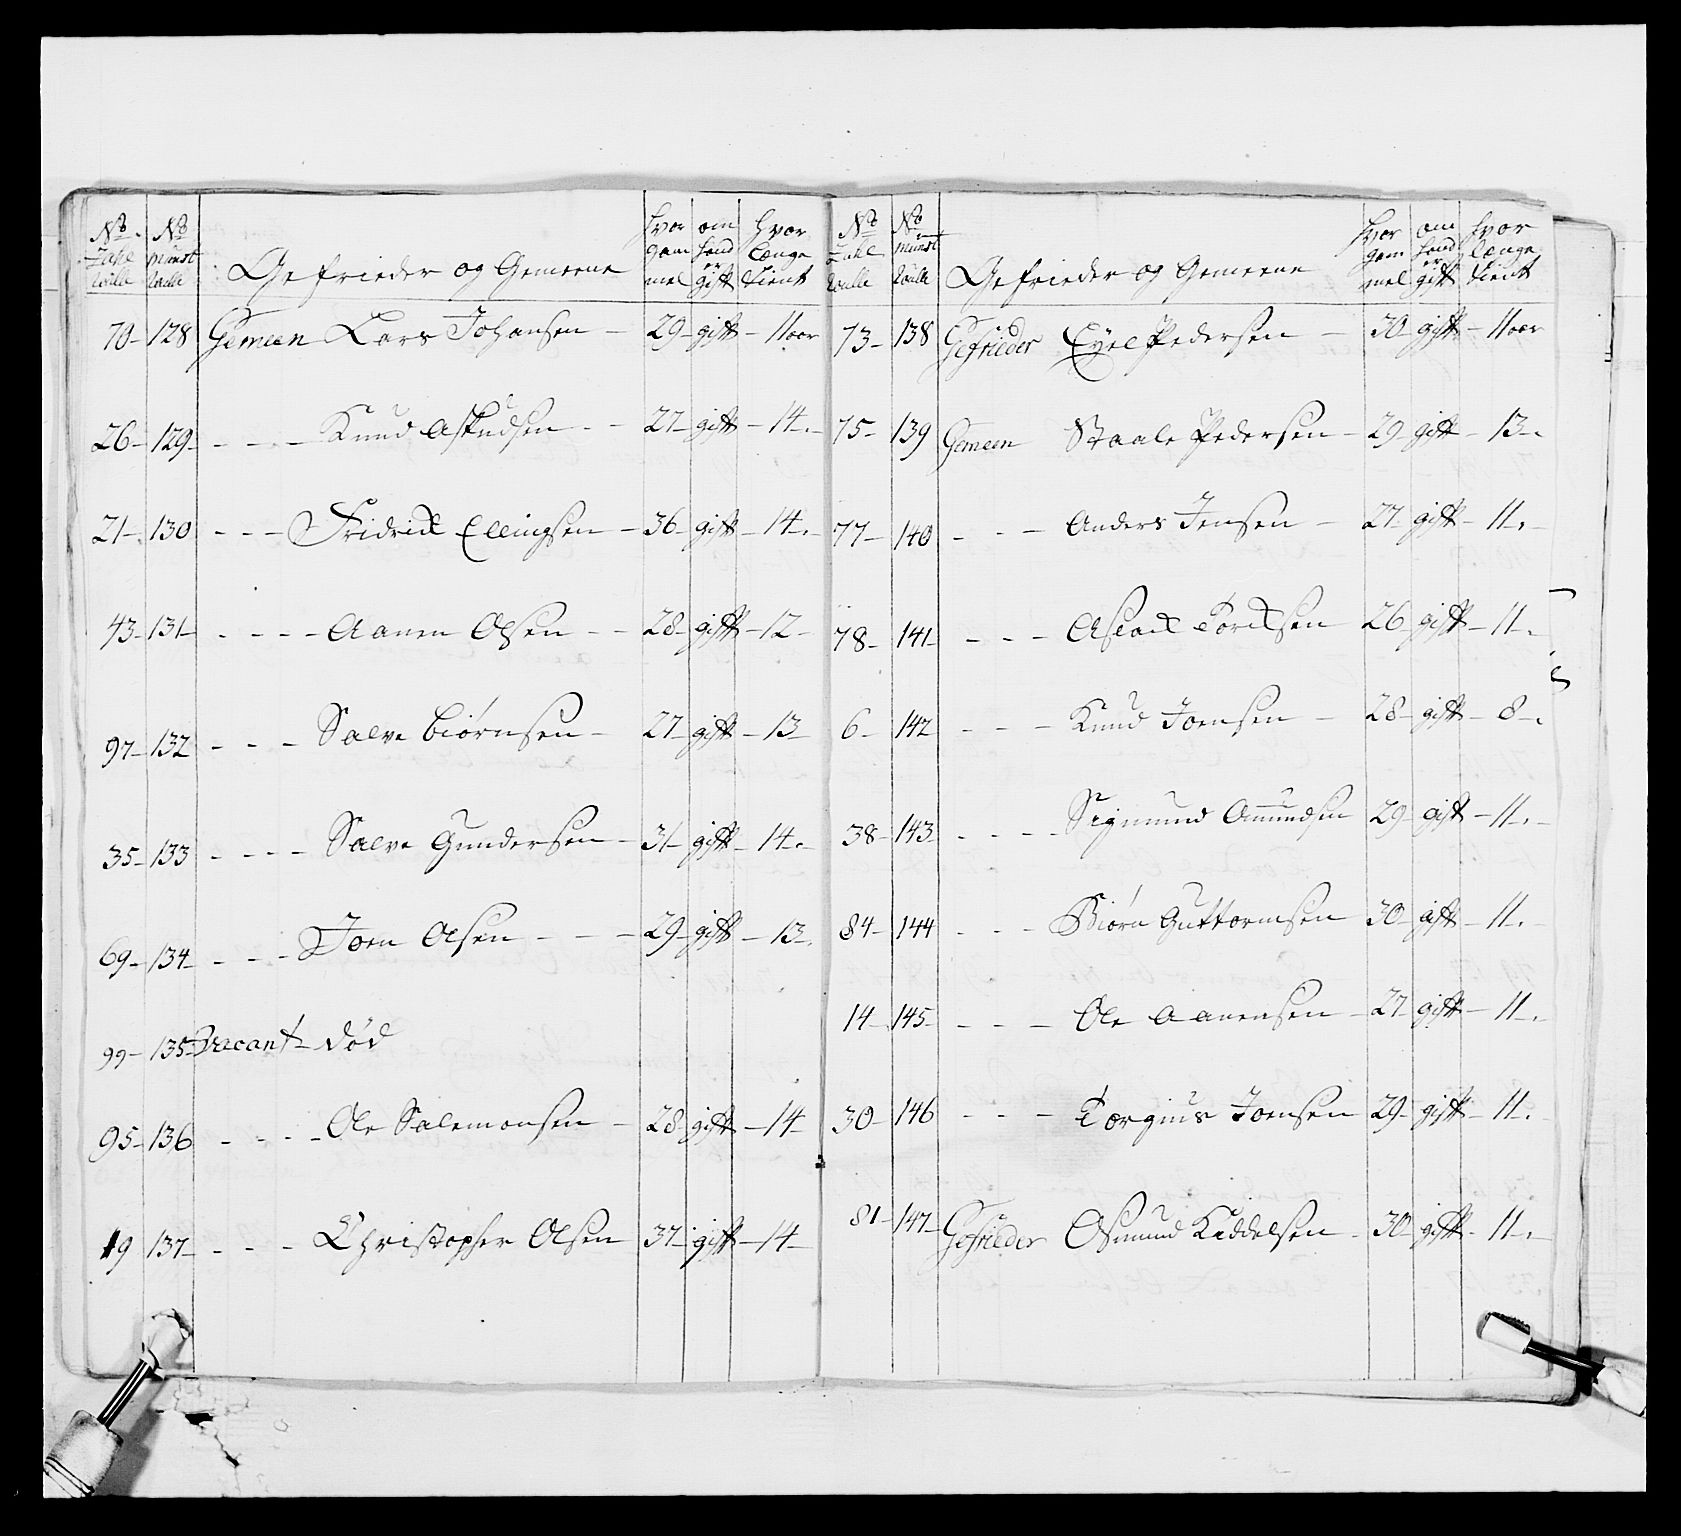 No Zahl Rulle | No Münst Rulle | Gefrieder og Gemeene | hvor gam mel | om hand er gift | hvor længe tient
70 - 128 Gemeen Lars Johansen - 29 - gift - 11 aar
26 - 129 - - - Knud Asludsen - - 27 - gift - 14. -
21 - 130 - - - Fridrich Ellingsen - 36 gift - 14. -
43 - 131 - - - - Aanen Olsen - - 28 - gift - 12 -
97 - 132 - - - Salve Biørnsen - 27 - gift - 13 -
35 - 133 - - - - Salve Gundersen - 31 - gift - 14 -.
69 - 134 - - - - Joen Olsen - - - 29 - gift - 13 -.
99 - 135 - Vacant - død
95 - 136 - - - - Ole Salemonsen - 28 gift - 14 -
19 137 - - - - Christopher Olsen 37 - gift - 14 -
No Zahl Rulle | No Münst Rulle | Gefrieder og Gemeene | hvor gam mel | om hand er gift | hvor længe tient
73 - 138 Gefrieder Eyel Pedersen - 30 - gift - 11 aar
75 - 139 Gemeen Staale Pedersen - 29 gift - 13 -.
77 - 140 - - - Anders Jensen - 27 - gift - 11. -
78 - 141 - - - - Aslach Torchsen 26 gift - 11 -.
6 - 142 - - - Knud Joensen - 28 - gift - 8 -.
38 - 143 - - - - Sigmund Amundsen 29 - gift - 11. -
84 - 144 - - - Biørn Guttormsen 30 - gift - 11. -
14 - 145 - - - - Ole Aanensen - 27 - gift - 11 -.
30 - 146 - - - Torgius Joensen 29 - gift - 11. -
81 - 147 - Gefrieder Osmund Keddelsen - 30 - gift - 11. -